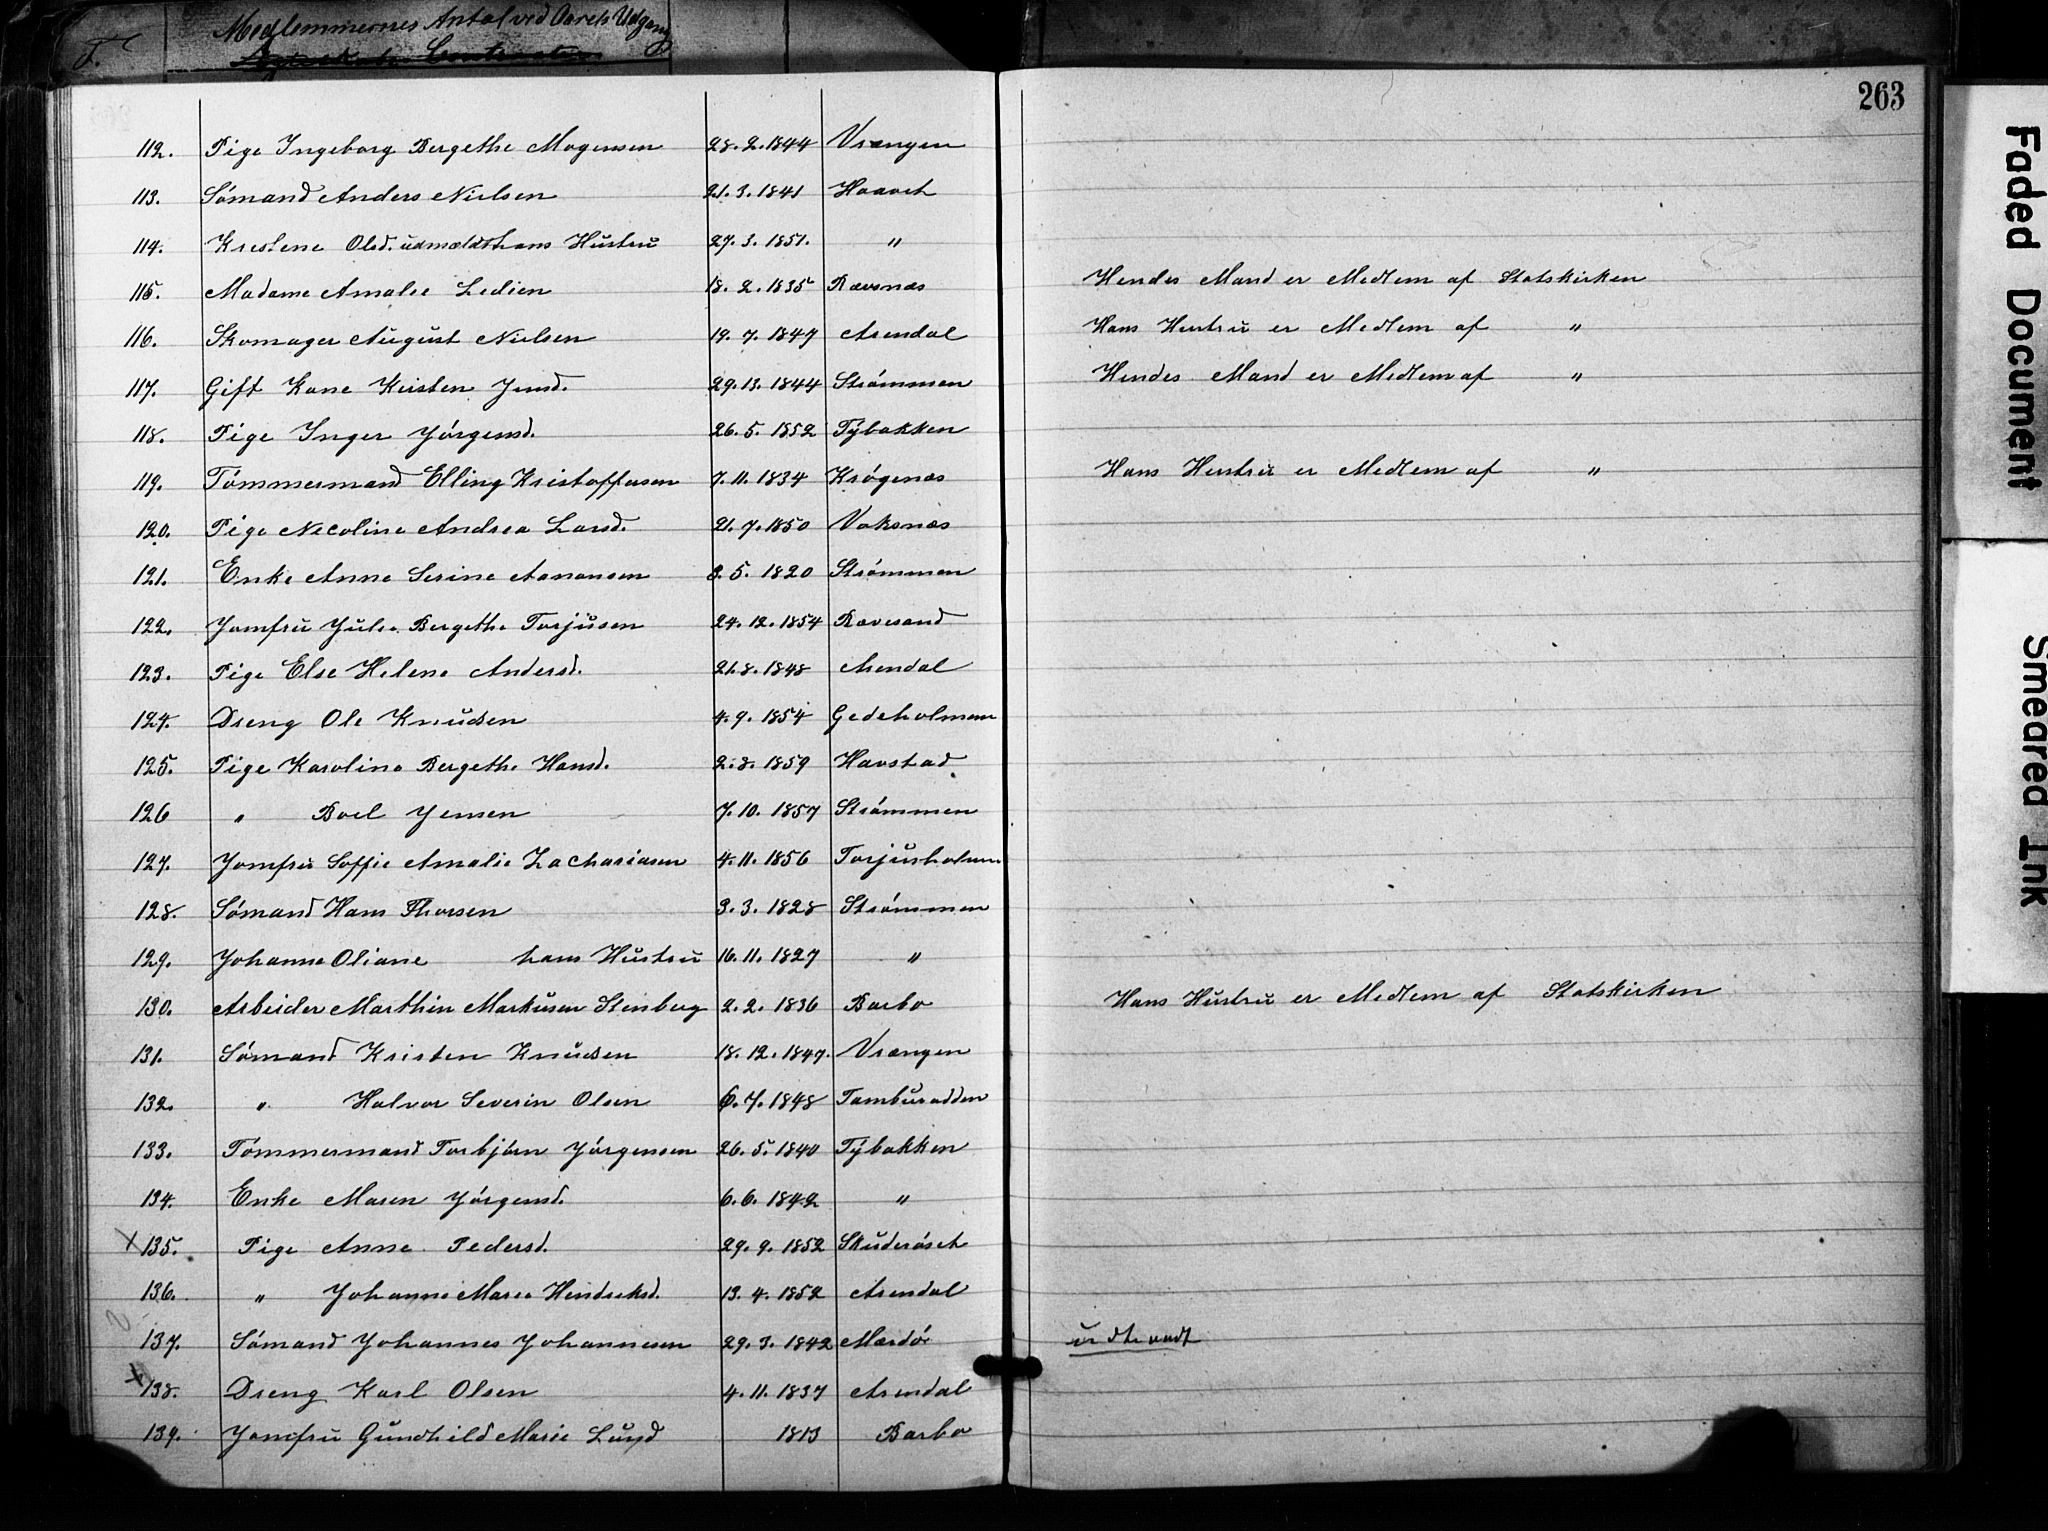 T.
Medlemmernes Antal ved Aarets Udgang
263
112. Pige Ingeborg Bergethe Mogensen 28. 2. 1844 Vrængen
113. Sømand Anders Nielsen 21. 3. 1841 Haavet
114. Kristene Olsd. udmeldt hans Hustru 27. 3. 1851. "
115. Madame Amalie Ledien 18. 2. 1835 Rævsnæs Hendes Mand er Medlem af Statskirken
116. Skomager August Nielsen 19. 7. 1847 Arendal Hans Hustru er Medlem af "
117. Gift Kone Kirsten Jensd. 29. 13. 1844 Strømmen Hendes Mand er Medlem af "
118. Pige Inger Jørgensd. 26. 5. 1852 Tybakken
119. Tømmermand Elling Kristoffersen 7. 11. 1834 Krøgenæs Hans Hustru er Medlem af "
120. Pige Nicoline Andrea Larsd. 21. 7. 1850 Vaksnæs
121. Enke Anne Serine Aanonsen 3. 5. 1820 Strømmen
122. Jomfru Julie Bergethe Torjusen 24. 12. 1854 Rævesand
123. Pige Else Helene Andersd. 21. 8. 1848 Arendal
124. Dreng Ole Knudsen 4. 9. 1854 Gedeholmen
125. Pige Karoline Bergethe Hansd. 2. 8. 1859 Havstad
126 " Boel Jensen 7. 10. 1857 Strømmen
127. Jomfru Soffie Amalie Zachariasen 4. 11. 1856 Torjusholmen
128. Sømand Hans Thorsen 3. 3. 1828 Strømmen
129. Johanne Oliane hans Hustru 16. 11. 1827 "
130. Arbeider Marthin Markusen Stenberg 2. 2. 1836 Barbo Hans Hustru er Medlem af Statskirken
131. Sømand Kristen Knudsen 18. 12. 1847. Vrængen
132. " Halvor Severin Olsen 6. 7. 1848 Tamburodden
133. Tømmermand Torbjørn Jørgensen 26. 5. 1840 Tybakken
134. Enke Maren Jørgensd. 6. 6. 1842 "
x 135. Pige Anne Pedersd. 29. 9. 1852 Skuderøset
136. " Johanne Marie Hendriksd. 13. 4. 1852 Arendal
137. Sømand Johannes Johannesen 29. 3. 1842 Mærdø udtraadt
x 138. Dreng Karl Olsen 4. 11. 1837 Arendal
139. Jomfru Gundhild Marie Lund 1813 Barbo
Faded Document
Smeared Ink